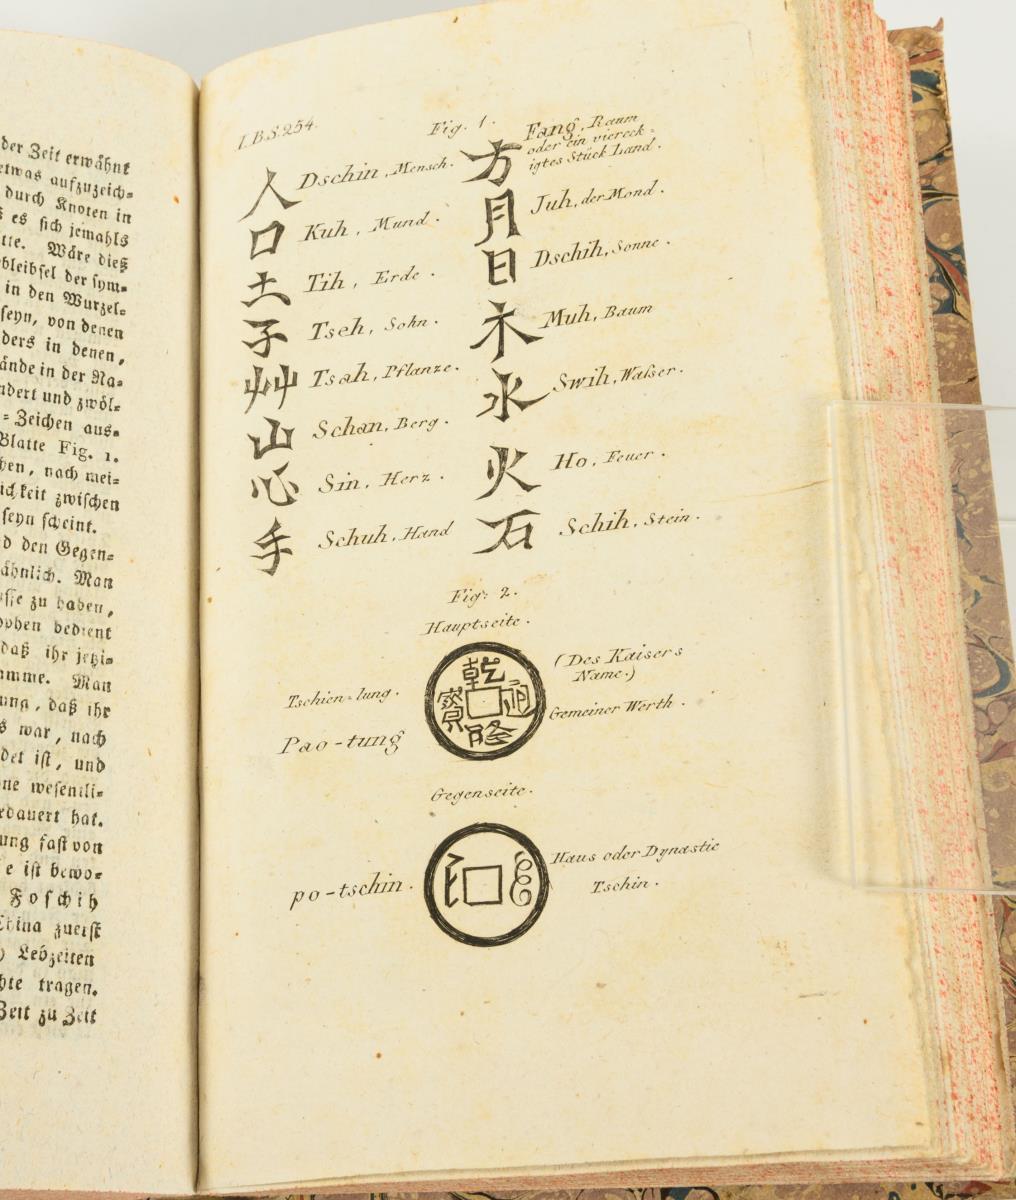 der Zeit erwähnt
etwas aufzuzeich=
durch Knoten in
es sich jemahls
tte. Wäre dieß
bleibsel der sym=
in den Wurzel=
seyn, von denen
ders in denen,
ände in der Na=
ndert und zwöl=
= Zeichen aus=
Blatte Fig. 1.
hen, nach mei=
ichkeit zwischen
seyn scheint.
d den Gegen=
ähnlich. Man
sse zu haben,
ophen bedient
daß ihr jetzi=
amme. Man
ung, daß ihr
s war, nach
det ist, und
ne wesentli=
edauert hat.
ung fast von
e ist bewo=
Foschih
China zuerst
Lebzeiten
hte tragen.
Zeit zu Zeit
I.B.S.254.
Fig. 1.
人 Dschin, Mensch.
口 Kuh, Mund.
土 Tih, Erde.
子 Tseh, Sohn.
艸 Tsah, Pflanze.
山 Schan, Berg.
心 Sin, Herz.
手 Schuh, Hand
方 Fang, Raum
oder ein viereck=
igtes Stück Land.
月 Juh, der Mond.
日 Dschih, Sonne.
木 Muh, Baum
水 Swih, Wasser.
火 Ho, Feuer.
石 Schih, Stein.
Fig: 2.
Hauptseite.
Tschien=lung.
Pao-tung
乾隆通寳
(Des Kaisers
Name.)
Gemeiner Werth.
Gegenseite.
po-tschin.
Haus oder Dynastie
Tschin.